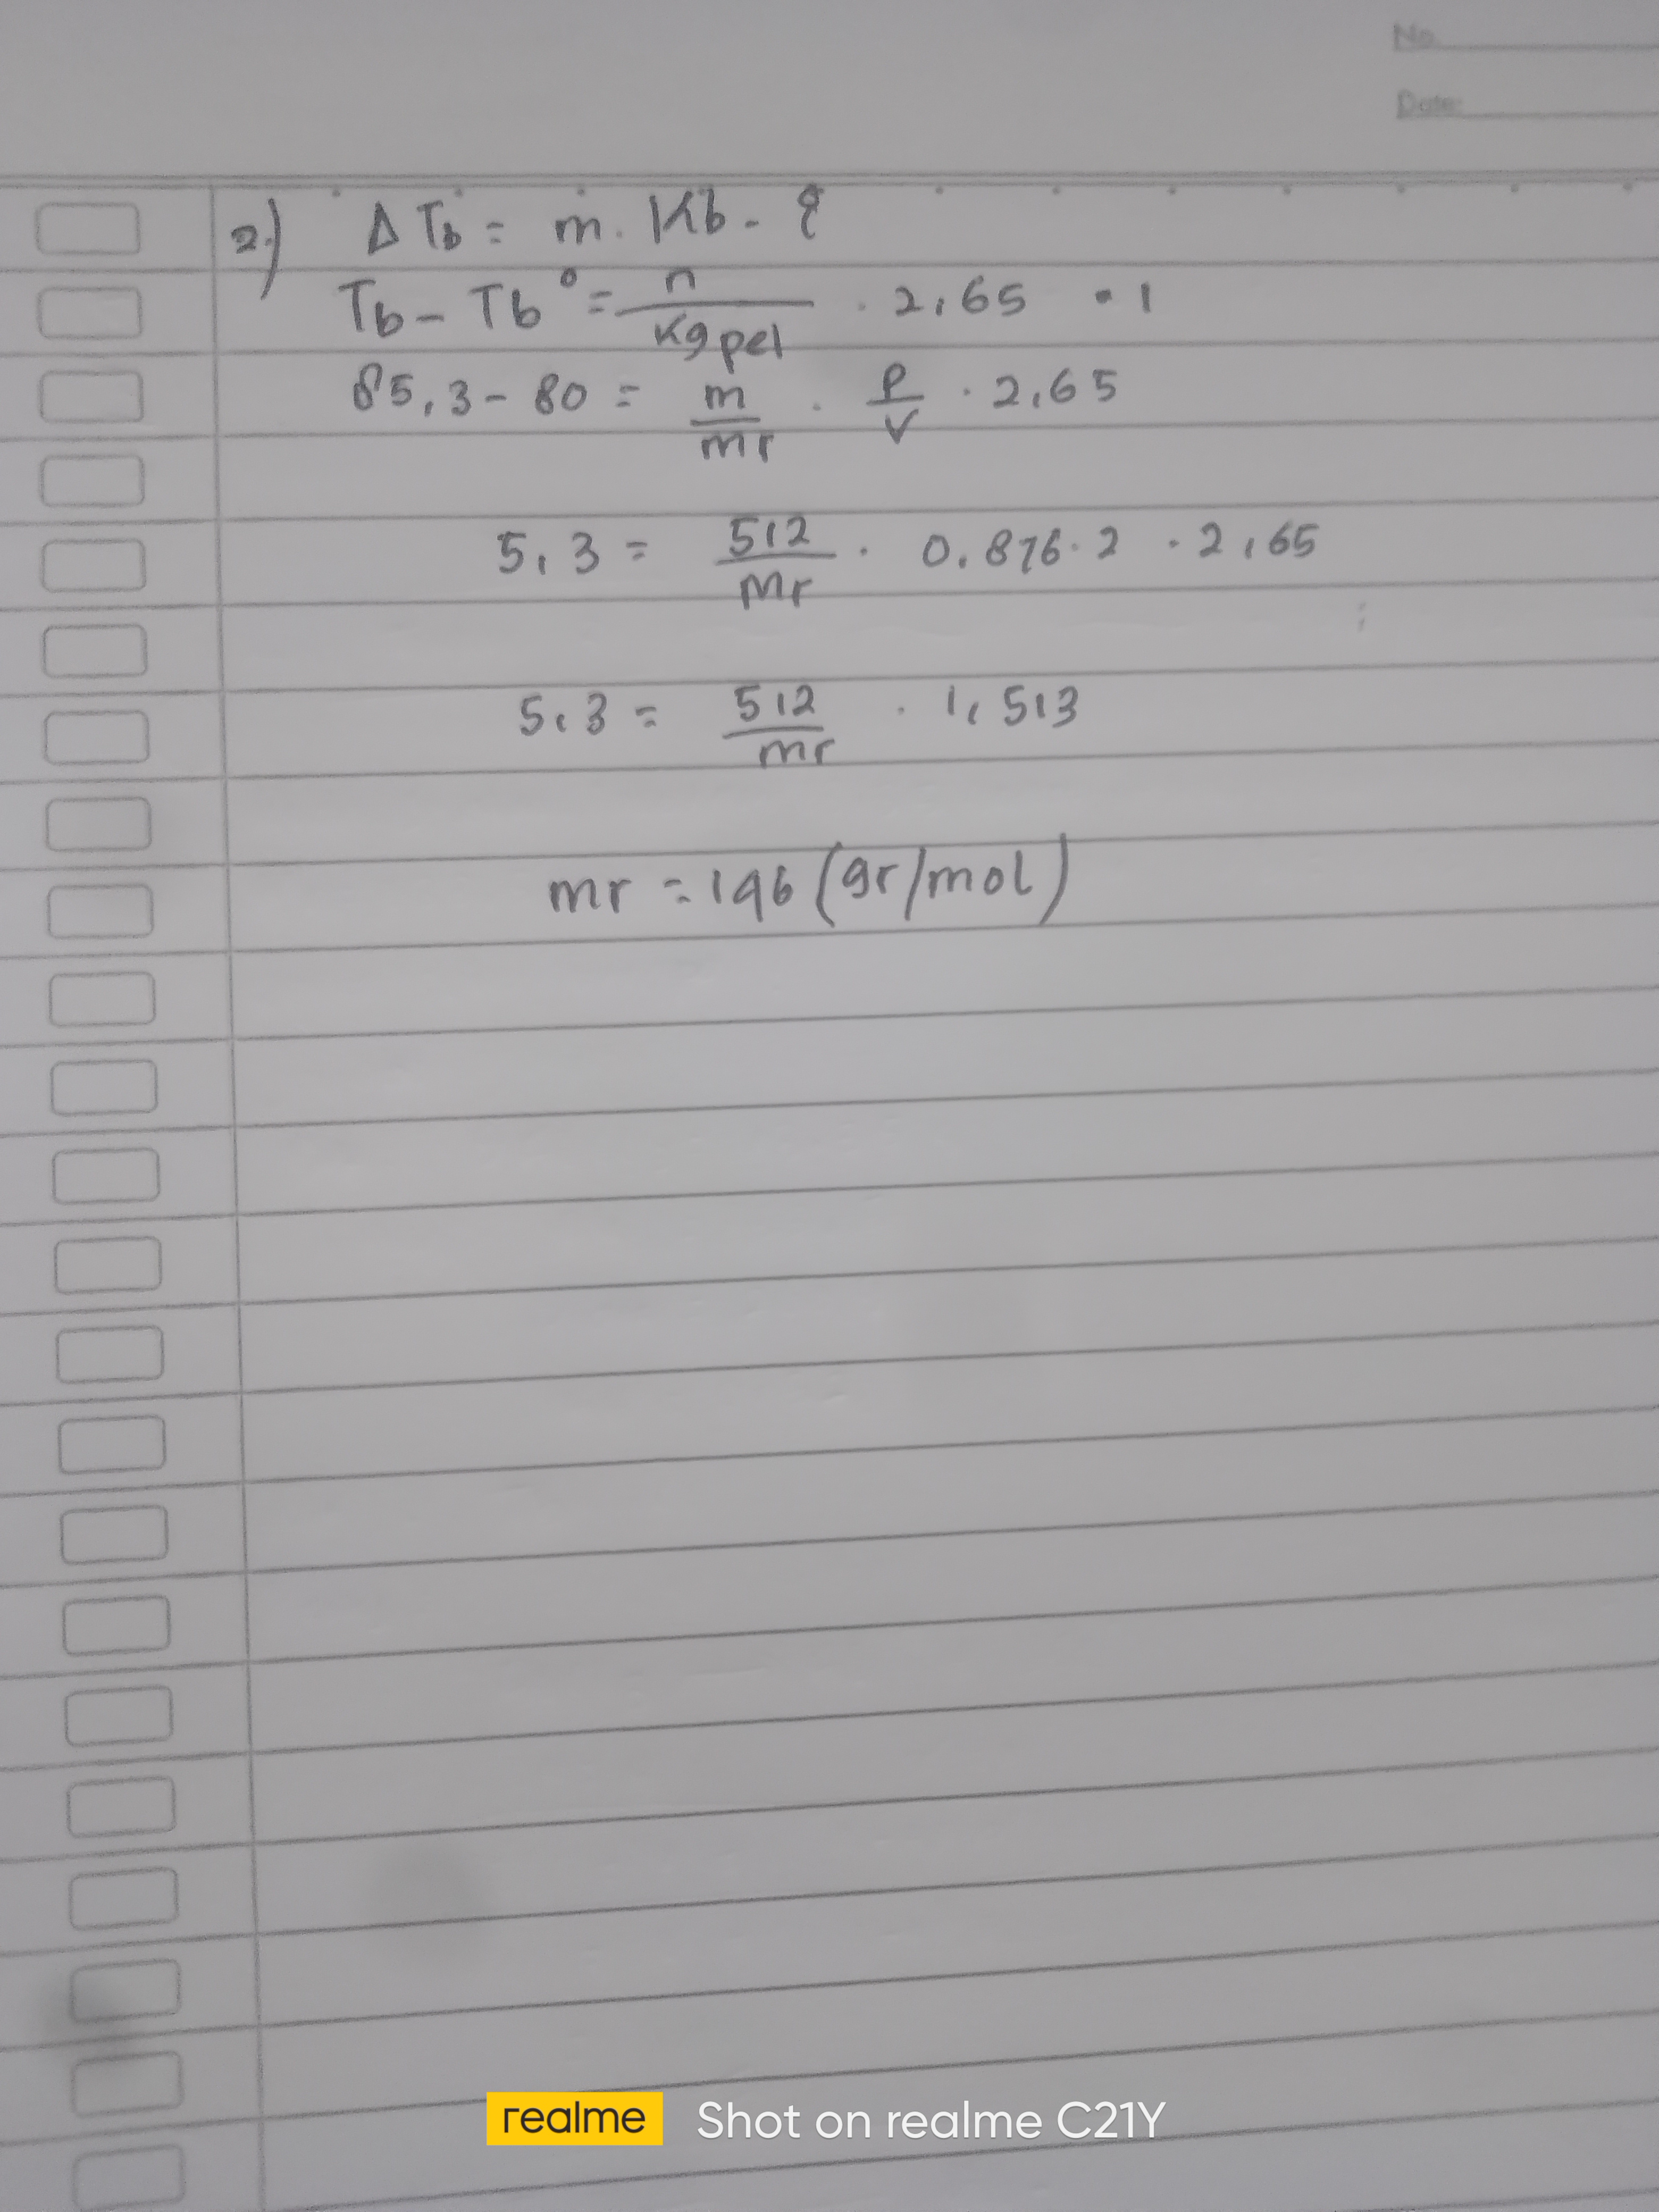 No.
Date:
2.) Δ Tb = m . Kb - i
Tb - Tb° = n / Kg pel . 2,65 • 1
85,3 - 80 = m / mr . P / V . 2,65
5,3 = 512 / Mr . 0,876 . 2 . 2,65
5,3 = 512 / mr . 1,513
mr = 146 (gr/mol)
realme Shot on realme C21Y